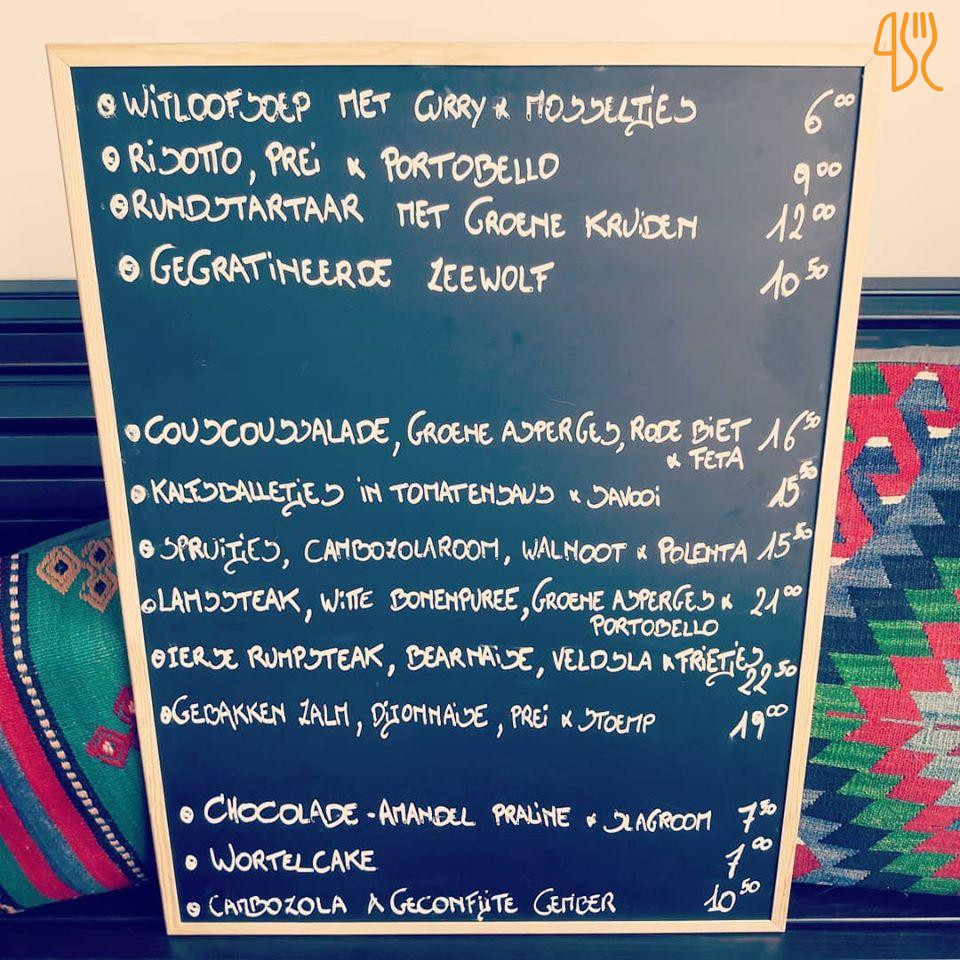 WITLOOFSOEP MET CURRY & MOSSELTJES 6⁰⁰
RISOTTO, PREI & PORTOBELLO 9⁰⁰
RUNDSTARTAAR MET GROENE KRUIDEN 12⁰⁰
GEGRATINEERDE ZEEWOLF 10⁵⁰
COUSCOUSSALADE, GROENE ASPERGES, RODE BIET 16⁵⁰
& FETA
KALFSBALLETJES IN TOMATENSAUS & SAVOOI 15⁵⁰
SPRUITJES, CAMBOZOLAROOM, WALNOOT & POLENTA 15⁵⁰
LAMSSTEAK, WITTE BONENPUREE, GROENE ASPERGES & 21⁰⁰
PORTOBELLO
IERSE RUMPSTEAK, BEARNAISE, VELDSLA & FRIETJES 22⁵⁰
GEBAKKEN ZALM, DIJONNAISE, PREI & STOEMP 19⁰⁰
CHOCOLADE-AMANDEL PRALINE & SLAGROOM 7⁵⁰
WORTELCAKE 7⁰⁰
CAMBOZOLA & GECONFIJTE GEMBER 10⁵⁰